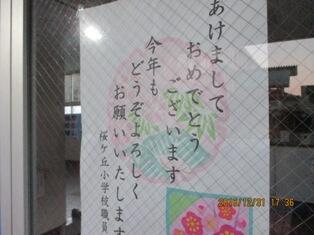 あけまして
おめでとう
ございます
今年も
どうぞよろしく
お願いいたします
桜ケ丘小学校職員
17 36